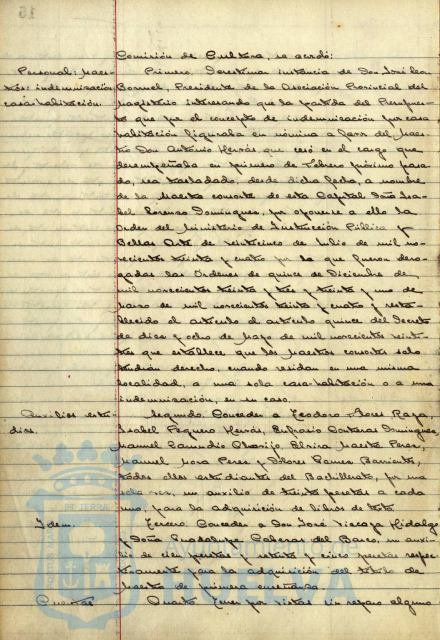 Comisión de Cultura, se acordó:
Personal: Maes-
tros: indemnización
casa-habitación.
Primero. Desestimar instancia de Don José Leon
Borruel, Presidente de la Asociación Provincial del
Magisterio interesando que la partida del Presupues-
to que por el concepto de indemnización por casa
habitación figuraba en nómina a favor del Maes-
tro Don Antonio Hervás, que cesó en el cargo que
desempeñaba en primero de Febrero próximo pasa-
do, sea trasladado, desde dicha fecha, a nombre
de la Maestra consorte de esta Capital Doña Isa-
bel Lorenzo Dominguez, por oponerse a ello la
Orden del Ministerio de Instrucción Pública y
Bellas Artes de veinticinco de Julio de mil no-
vecientos treinta y cuatro por la que fueron dero-
gadas las Ordenes de quince de Diciembre de
mil novecientos treinta y tres y treinta y uno de
Marzo de mil novecientos treinta y cuatro y resta-
blecido el artículo el artículo quince del Decreto
de diez y ocho de Mayo de mil novecientos veinti-
tres que establece que los Maestros consortes solo
tendrán derecho, cuando residan en una misma
localidad, a una sola casa-habitación o a una
indemnización, en su caso.
Auxilios estu-
dios.
Segundo. Conceder a Teodoro Flores Rapa,
Isabel Peguero Hervás, Eufrasio Contreras Dominguez,
Manuel Zamudio Obarijo, Elvira Maeste Perez,
Manuel Mora Perez y Dolores Gomez Barriente,
todos ellos estudiantes del Bachillerato, por una
sola vez, un auxilio de treinta pesetas a cada
uno, para la adquisición de libros de texto
Idem.
Tercero. Conceder a Don José Vizcaya Hidalgo
y Doña Guadalupe Cabezas del Barco, un auxi-
lio de cien pesetas y setenta y cinco pesetas respec-
tivamente para la adquisición del título de
Maestra de primera enseñanza.
Cuentas
Cuarto. Tener por vistas sin reparo alguno